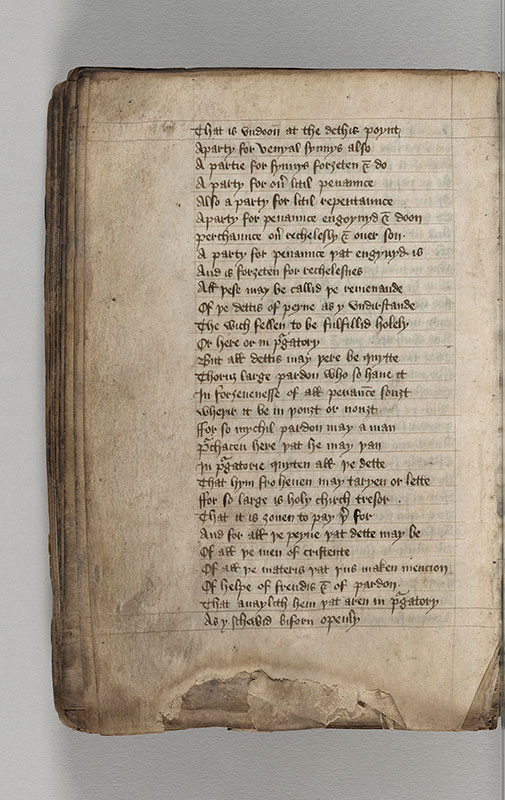 That is vndoon at the dethis poynt
Aparty for venyal synnys also
A partie for synnys forȝeten & do
A party for ou̅ litil penaunce
Also a party for litil repentaunce
Aparty for penaunce engoynyd & doon
perchaunce ou̅ rechelesly & ouer son·
A party for penaunce yat engynyd is
And is forȝeten for rechelesnes
All yese may be callid ye remenaunde
Of ye dettis of peyne as y vndirstande
The wich fellen to be fulfillid holely
Or here or in pͥgatory
But all dettis may yere be quytte
Thoruȝ large pardon who so haue it
In forȝeuenesse of all penaūce souȝt
wheyir it be in youȝt or nouȝt
ffor so mychil pardon may a man
pͥchacen here yat he may yan
In pͥgatorie quyten all ye dette
That hym fro heuen may taryen or lette
ffor so large is holy chirch tresor .
That it is ȝouen to pay yͤ for
And for all ye peyne yat dette may be
Of all ye men of cristente
Of all ye materis yat yus maken mencion
Of helpe of frendis & of pardon·
That auaylith hem yat aren in pͥgatory
As y schewid biforn openly